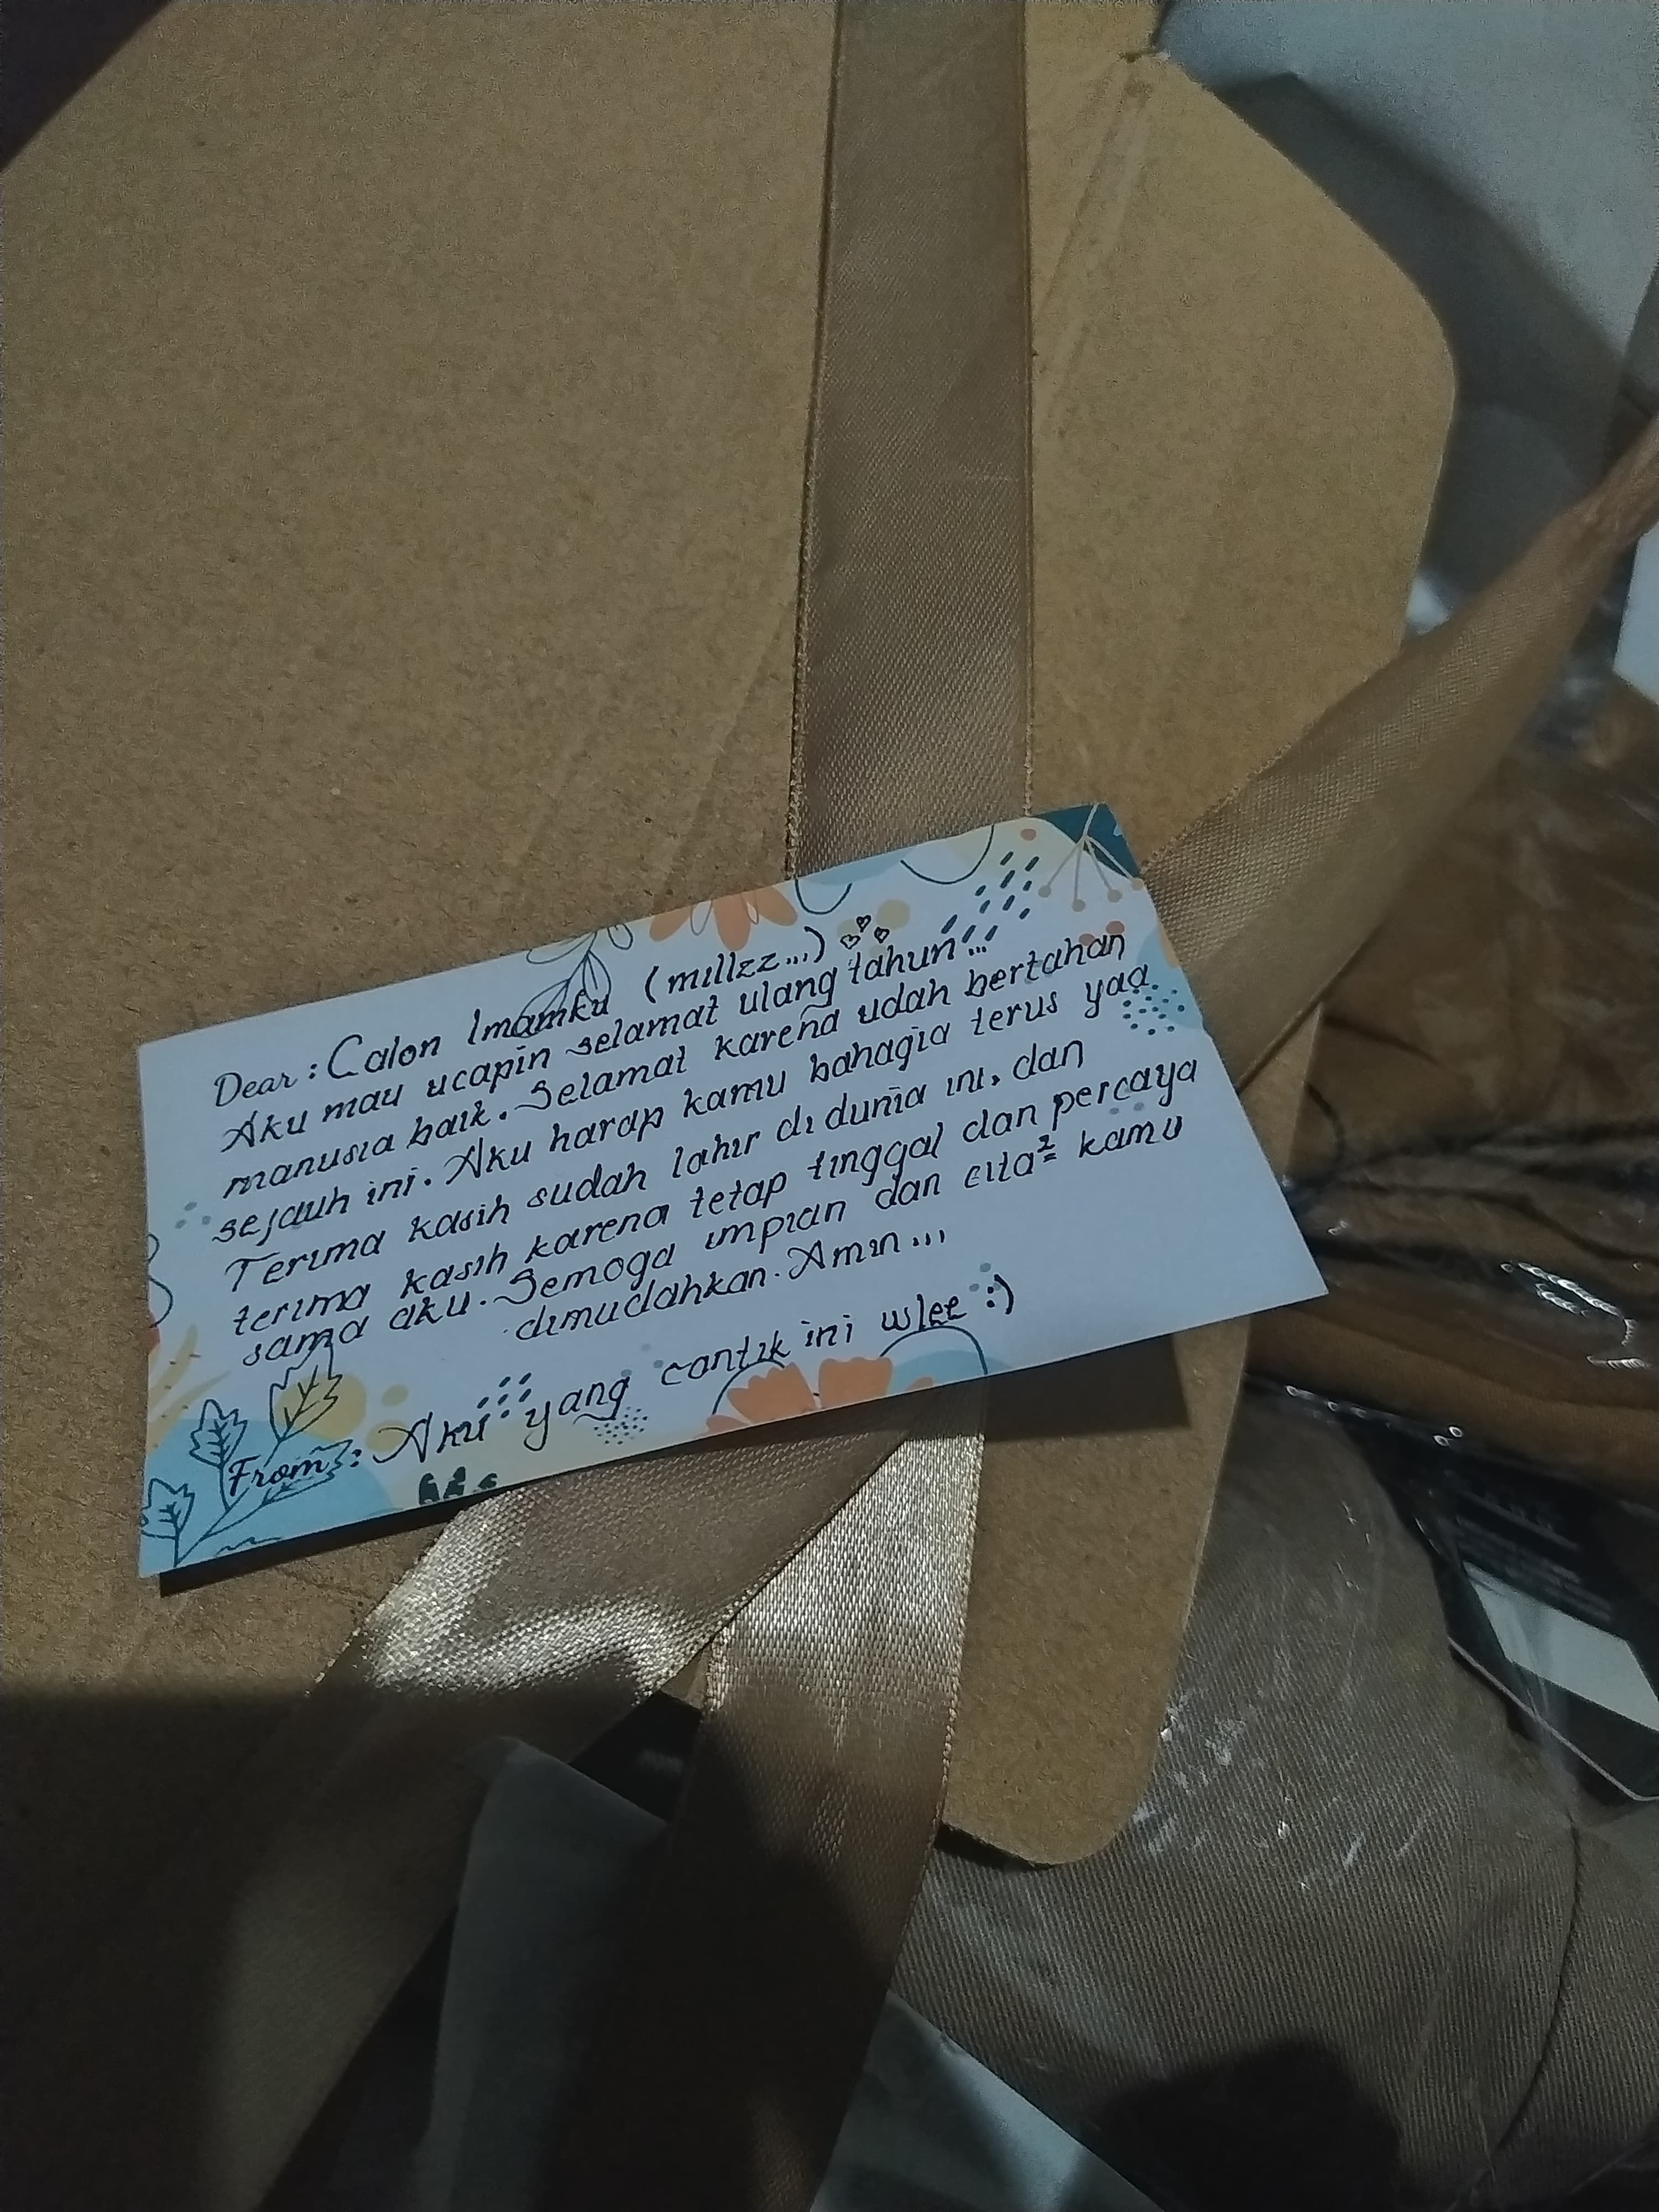 Dear : Calon Imamku (millzz...)
Aku mau ucapin selamat ulang tahun...
manusia baik. Selamat karena udah bertahan
sejauh ini. Aku harap kamu bahagia terus yaa
Terima kasih sudah lahir di dunia ini, dan
terima kasih karena tetap tinggal dan percaya
sama aku. Semoga impian dan cita² kamu
dimudahkan. Amin...
From : Aku yang cantik ini wlee :)